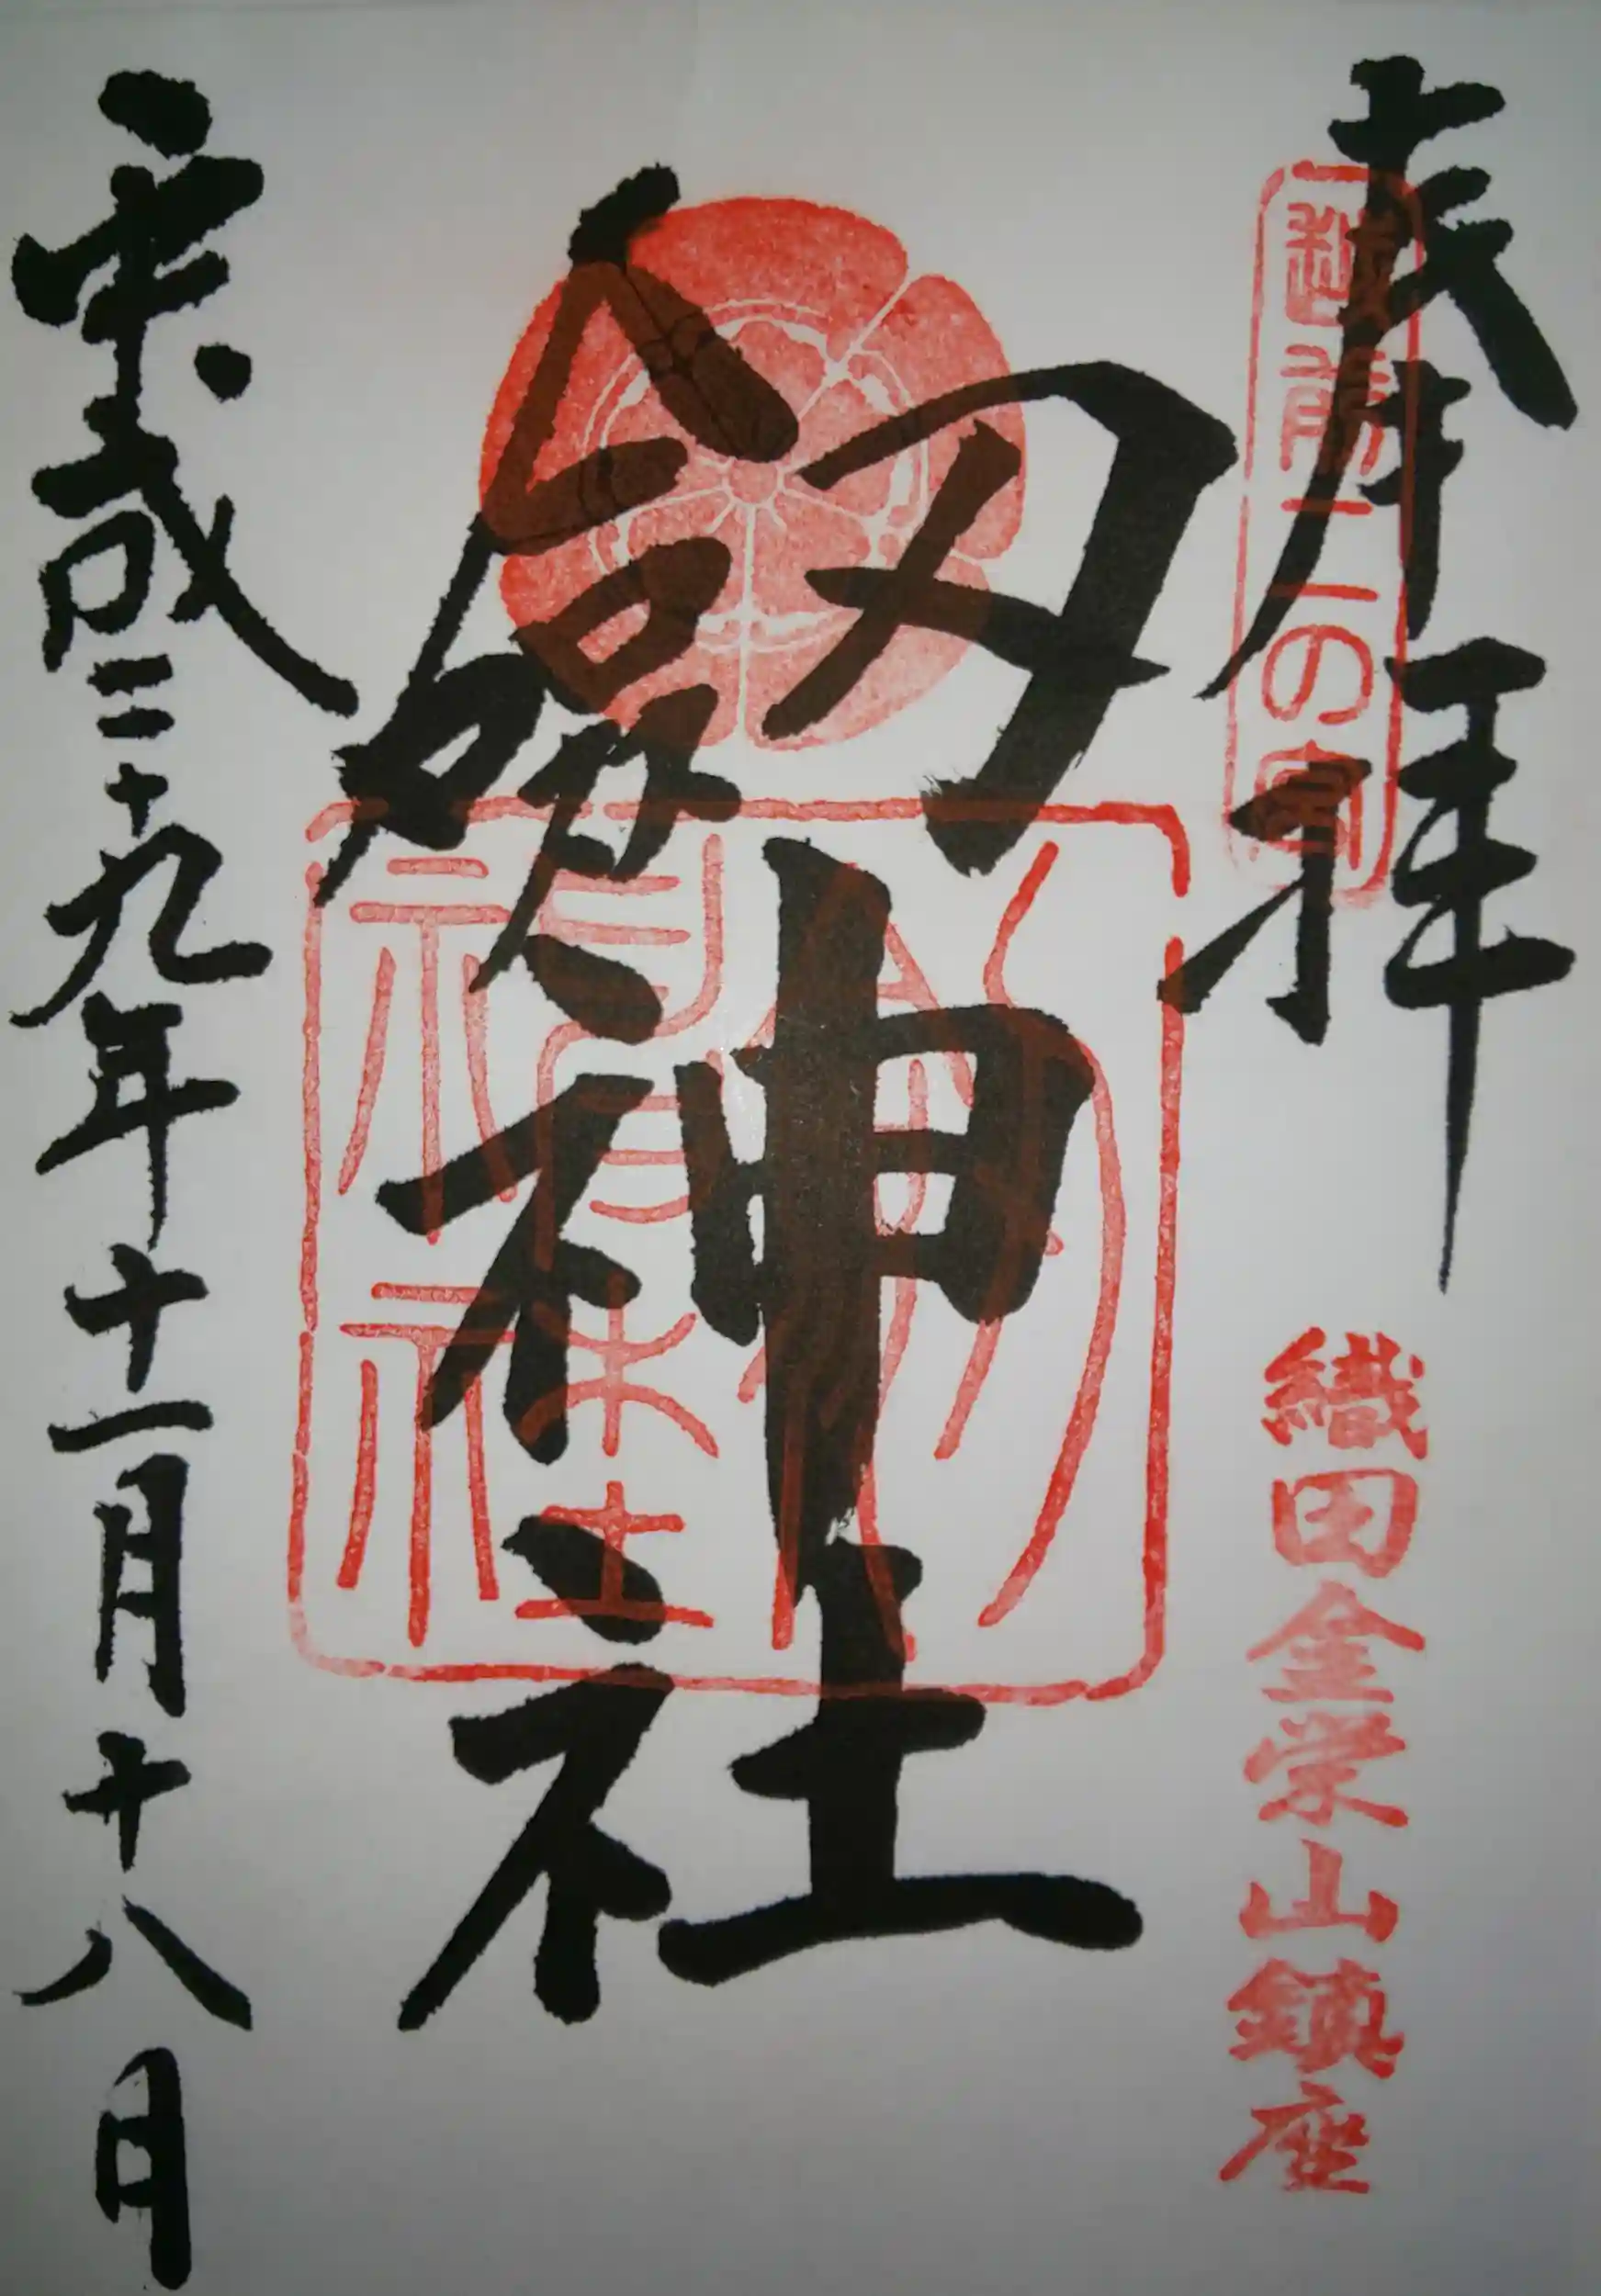 奉拝
越前二の宮
織田金栄山鎮座
劔神社
劔神社
平成二十九年十一月十八日